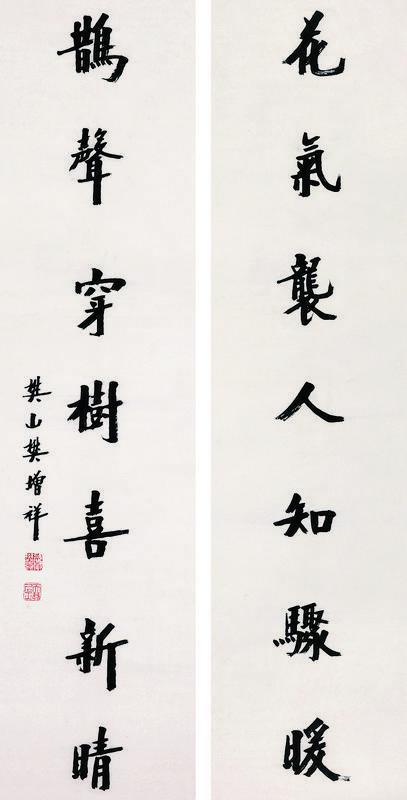 花氣襲人知驟暖
鵲聲穿樹喜新晴
樊山樊增祥